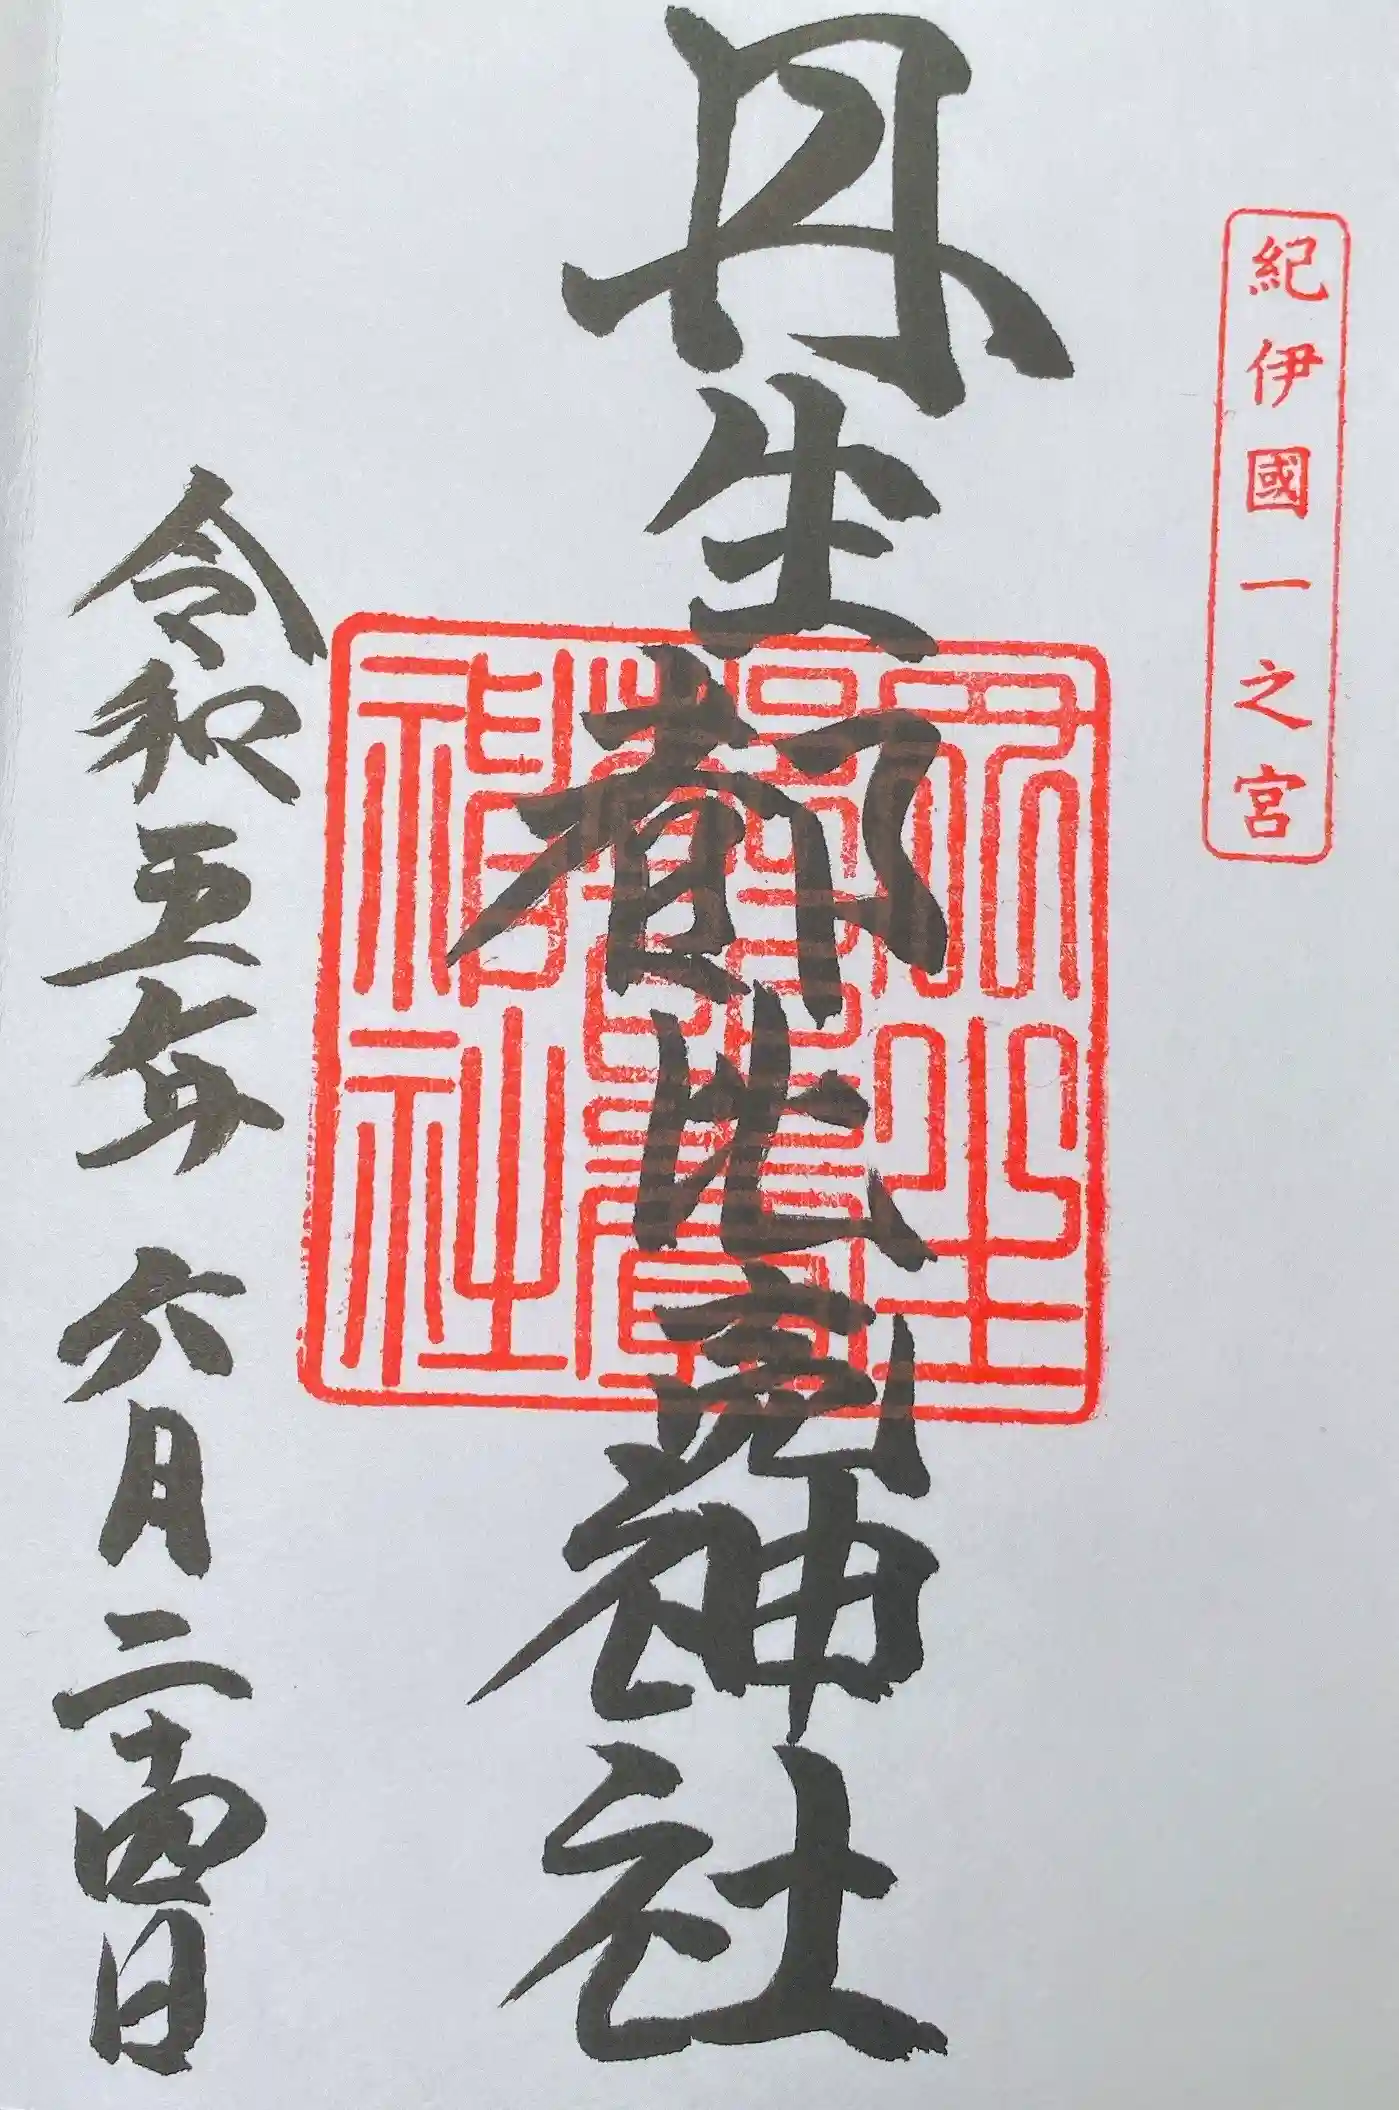 紀伊國一之宮
丹生都比売神社
丹生都比賣神社
令和五年六月二十四日